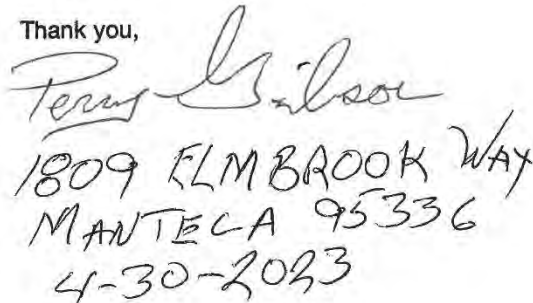 Thank you,
Perry Gibson
1809 ELMBROOK WAY
MANTECA 95336
4-30-2023